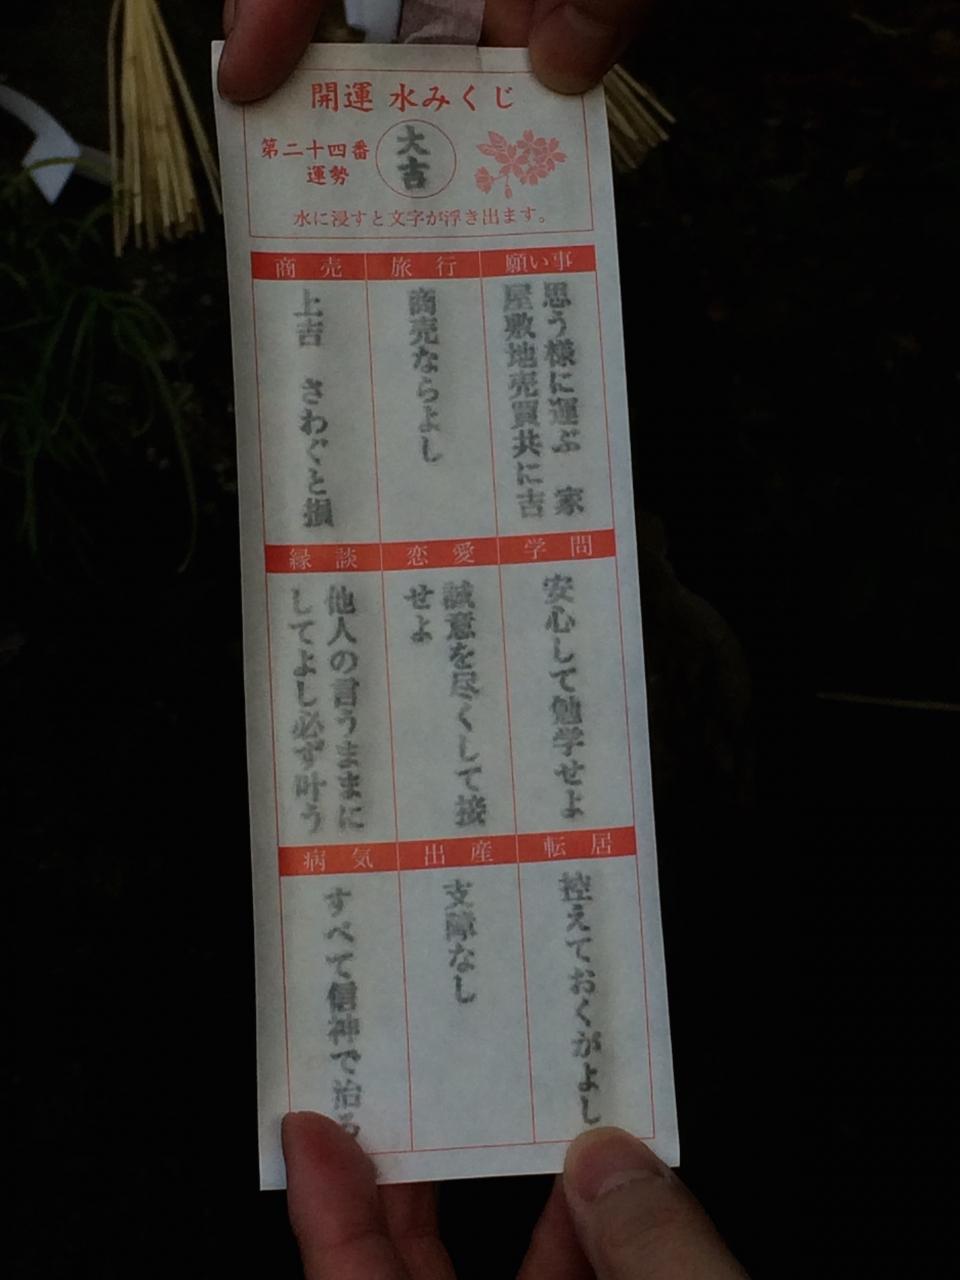 開運 水みくじ
第二十四番
運勢
大吉
水に浸すと文字が浮き出ます。
願い事
思う様に運ぶ 家
屋敷地売買共に吉
旅行
商売ならよし
商売
上吉 さわぐと損
学問
安心して勉学せよ
恋愛
誠意を尽くして接
せよ
縁談
他人の言うままに
してよし必ず叶う
転居
控えておくがよし
出産
支障なし
病気
すべて信神で治る